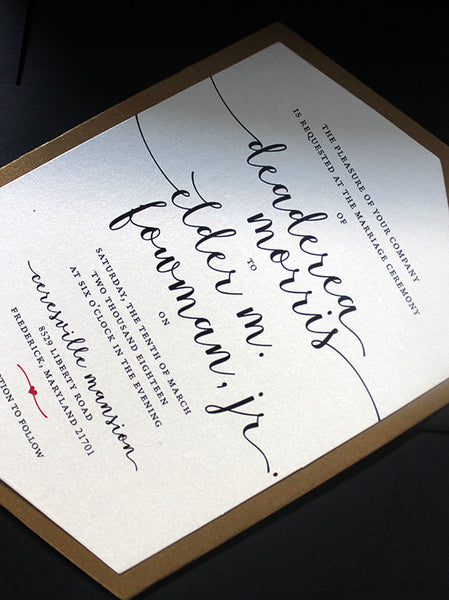 THE PLEASURE OF YOUR COMPANY
IS REQUESTED AT THE MARRIAGE CEREMONY
OF
deaderea
morris
TO
elder m.
fowman, jr.
ON
SATURDAY, THE TENTH OF MARCH
TWO THOUSAND EIGHTEEN
AT SIX O'CLOCK IN THE EVENING
ceresville mansion
8529 LIBERTY ROAD
FREDERICK, MARYLAND 21701
TION TO FOLLOW